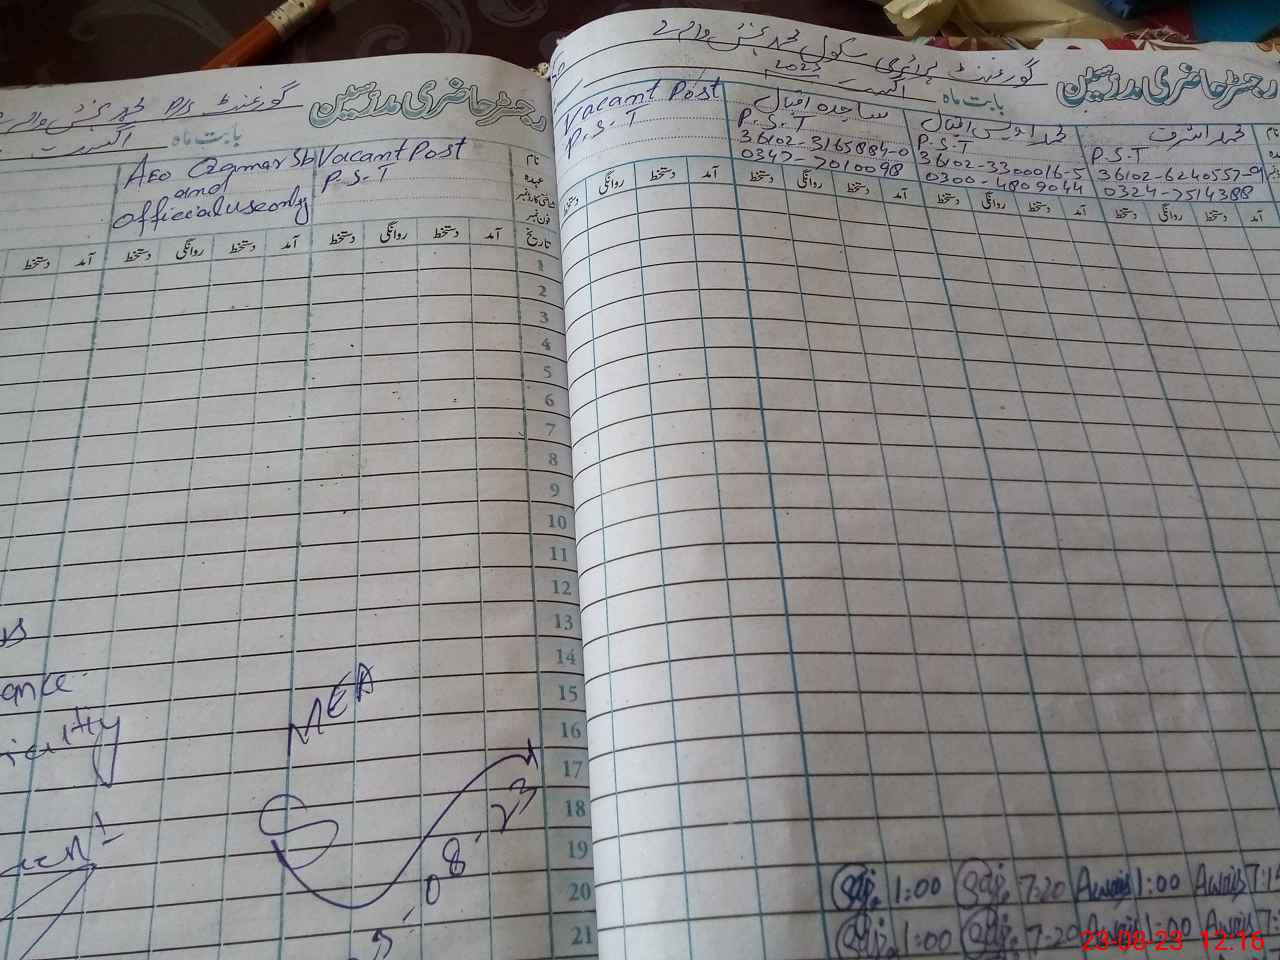 رجسٹر حاضری مدرسین
گورنمنٹ پرائمری سکول محمد بخش والہ
بابت ماہ اگست 2023
محمد اشرف
P.S.T
36102-6240557-9
0324-7514388
محمد اویس اقبال
P.S.T
36102-3300016-5
0300-4809044
ساجدہ اقبال
P.S.T
36102-3165884-0
0347-7010098
Vacant Post
P.S.T
آمد دستخط روانگی دستخط آمد دستخط روانگی دستخط آمد دستخط روانگی دستخط آمد دستخط روانگی دستخط
Saj. 1:00 Saj. 7:20 Awais 1:00 Awais
Saj. 1:00 Saj. 7:20 Awais 1:00 Awais
رجسٹر حاضری مدرسین
گورنمنٹ P/S محمد بخش والہ
بابت ماہ اگست
نام
عہدہ
شناختی کارڈ نمبر
فون نمبر
Vacant Post
P.S.T
AEO Qamar Sb
and
official use only
تاریخ آمد دستخط روانگی دستخط آمد دستخط روانگی دستخط آمد دستخط
1
2
3
4
5
6
7
8
9
10
11
12
13
14
15
16
17
18
19
20
21
MEA
08.23
23-08-23 12:16